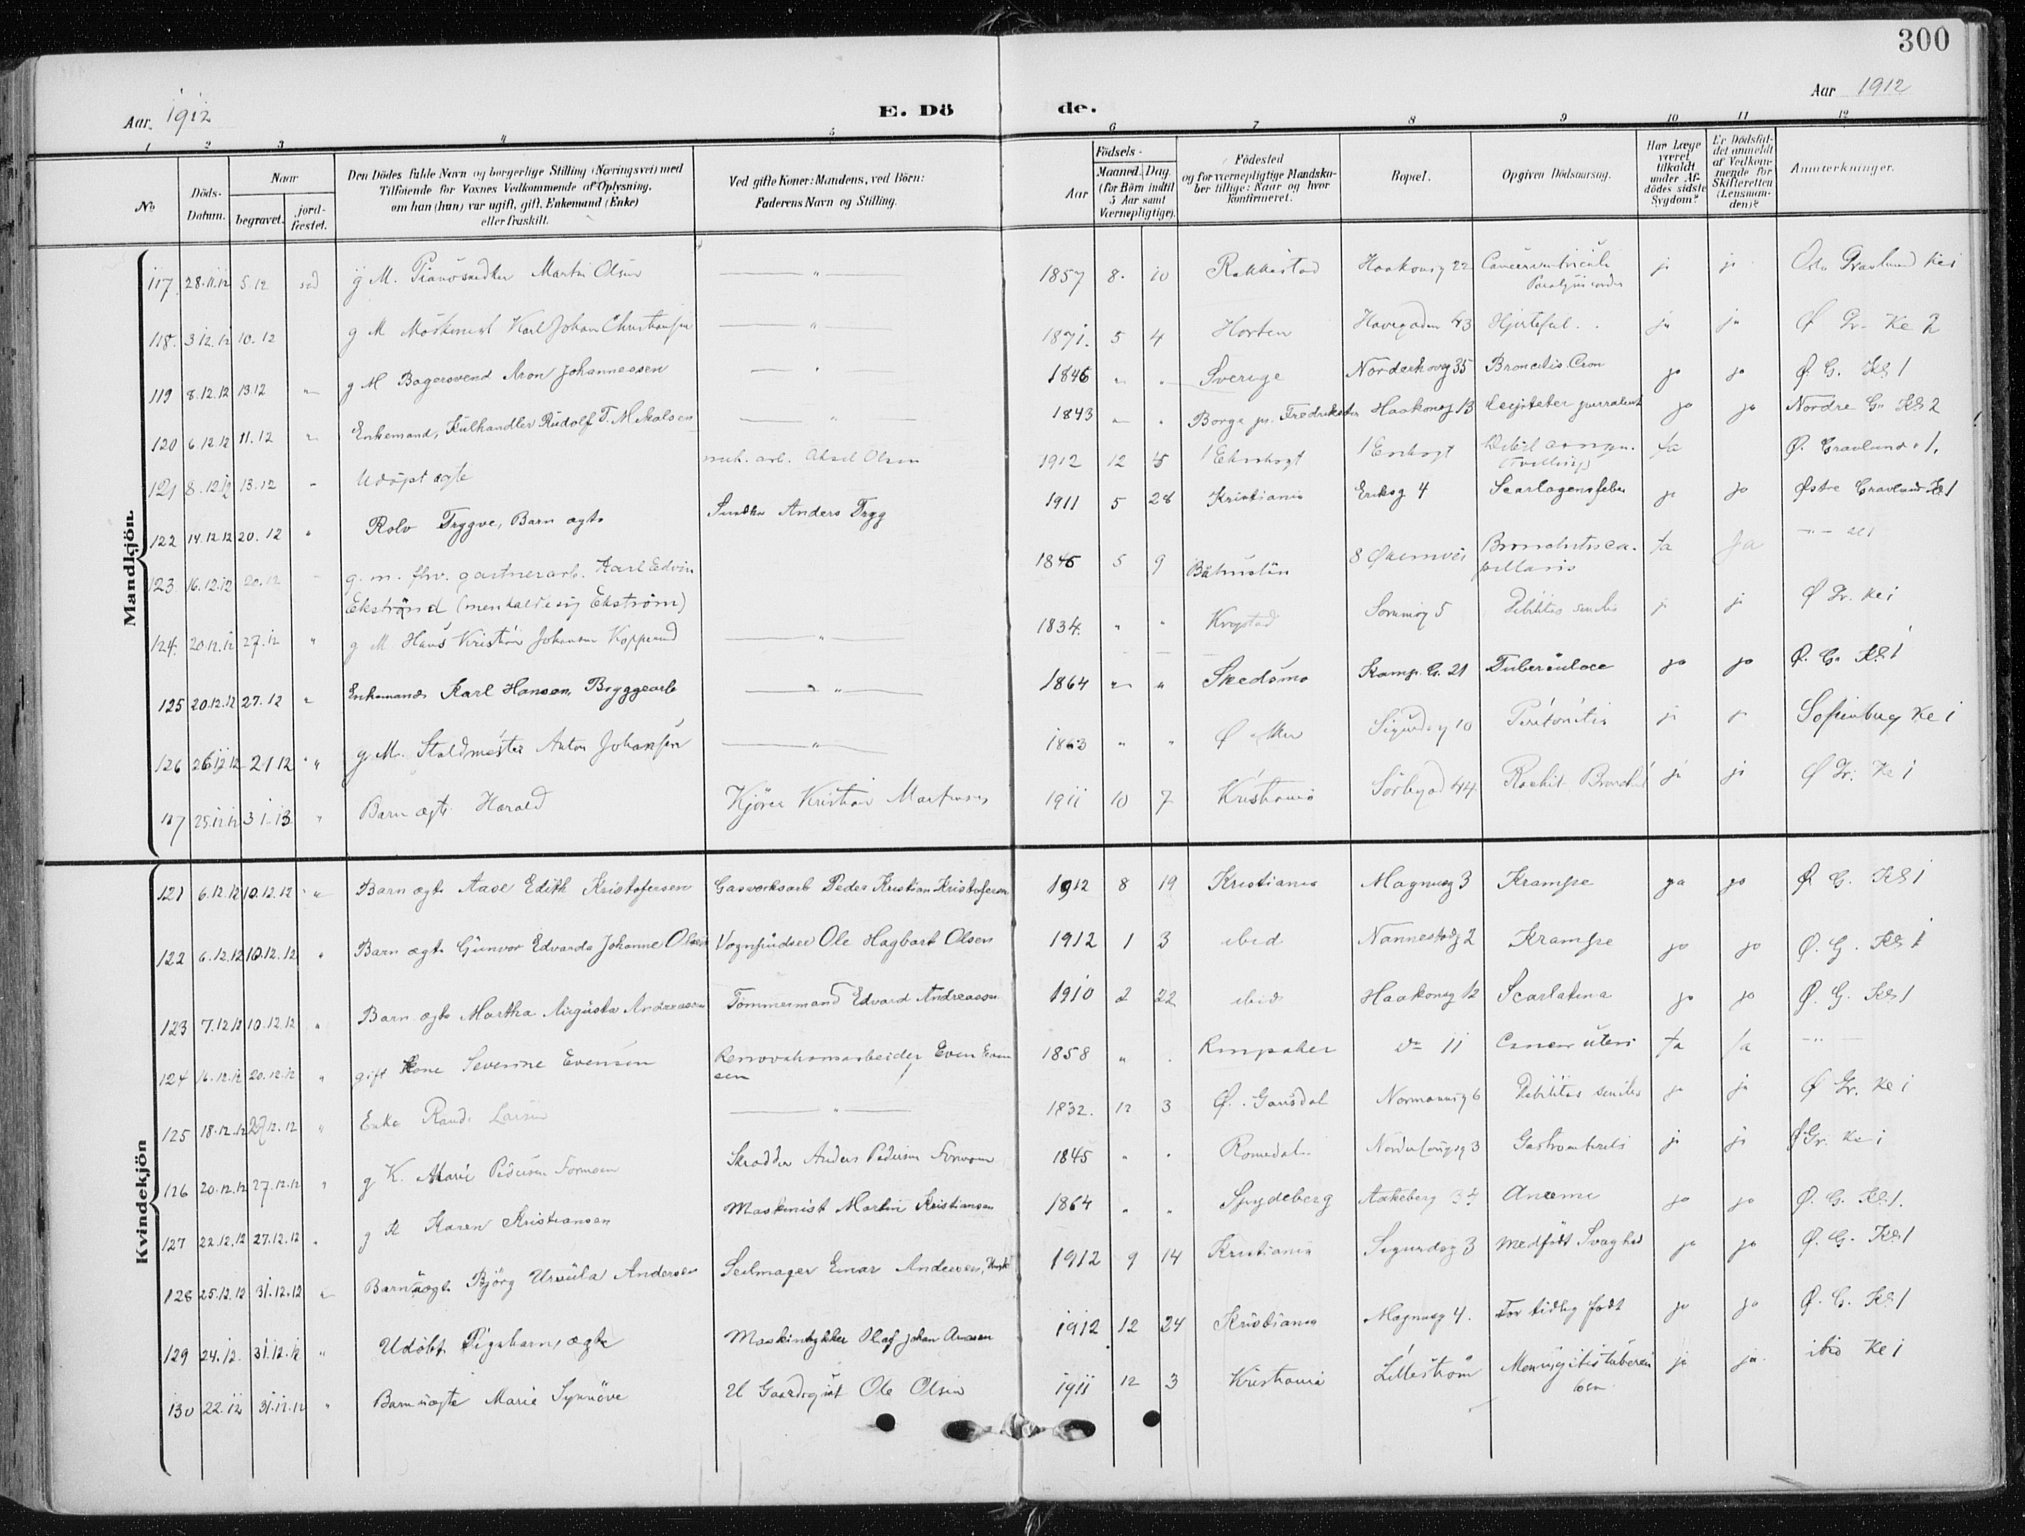 300
Aar. 1912 E. Dö de. Aar 1912
1 2 3 4 5 6 7 8 9 10 11 12
No
Döds-Datum.
Naar begravet. jordfæstet.
Den Dödes fulde Navn og borgerlige Stilling (Næringsvei) med
Tilföiende for Voxnes Vedkommende af Oplysning,
om han (hun) var ugift, gift, Enkemand (Enke)
eller fraskilt.
Ved gifte Koner: Mandens, ved Börn:
Faderens Navn og Stilling.
Födsels-
Aar Maaned. Dag.
(for Börn indtil 5 Aar samt Værnepligtige).
Födested
og for værnepligtige Mandskaber tillige: Naar og hvor konfirmeret.
Bopæl.
Opgiven Dödsaarsag.
Har Læge været tilkaldt under Afdödes sidste Sygdom?
Er Dödsfaldet anmeldt af Vedkommende for Skifteretten (Lensmanden)?
Anmerkninger.
Mandkjön.
117 28.11.12 5.12 g M. Martin Olsen — " — 1857 8. 10 Rakkestad Haakonsg 22 ja ja
118. 3.12.12 10.12 g M Maskinist Karl Johan Christiansen — " — 1871. 5 4 Horten 43 Hjertefeil. ja ja Ø Gr. Kl 2
119 8.12.12 13.12 " g M Bagersvend Aron Johannessen — " — 1846 " " Sverige Norderhovg 35 Broncitis Cron ja ja Ø. G. Kl 1
120 6.12.12 11.12 " Enkemand, Kulhandler Rudolf T. Mikalsen — " — 1843 " " Borge pr. Fredrikstad Haakonsg 13 ja ja Nordre G. Kl 2
121 8.12.12 13.12 " Udöpt ægte mek. arb. Aksel Olsen 1912 12 (Tvilling) Ja Ø. Gravlund. 1.
122 14.12.12 20.12 " Rolv Tryggve, Barn ægte Anders Tryg 1911 5 28 Kristiania Eriksg 4 Scarlagensfeber ja ja Østre Gravlund Kl 1
123 16.12.12 20.12 " g. m. fhv. gartnerarb. Karl Edvin
Ekstrand (men kaldte sig Ekström) 1845 5 9 Båhuslän 8 Ja Ja
124. 20.12.12 27.12 " g M Hans Kristian Johansen — " — 1834. " " 5 Debilitas senilis ja ja Ø Gr. Kl 1
125 20.12.12 27.12 " Enkemand Karl Hansen, Bryggearb — " — 1864 " " Skedsmo Kamp. G. 21 Tuberculose ja ja Ø. G. Kl 1
126 26.12.12 2.1.12 " g. M. Staldmester Anton Johansen — " — 1863 " " Ø Aker Sigurdsg 10 Peritonitis ja ja Sofienberg Kl 1
25.12.12 3.1.13 " Barn ægte Harald Kjörer Kristian 1911 10 7 Kristiania 44 ja ja Ø Gr. Kl 1
Kvindekjön
121 6.12.12 10.12.12 " Barn ægte Aase Edith Kristofersen Gasverksarb Peder Kristian Kristofersen 1912 8 19 Kristiania Magnusg 3 Krampe ja ja Ø. G. Kl 1
122 6.12.12 10.12.12 " Barn ægte Gunvor Edvarda Johanne Olsen Vognpudser Ole Hagbart Olsen 1912 1 3 ibid Nannestadg 2 Krampe ja ja Ø. G. Kl 1
123 7.12.12 10.12.12 " Barn ægte Martha Augusta Andreassen Tömmermand Edvard Andreassen 1910 2 22 ibid Haakonsg 12 Scarlatina ja ja Ø. G. Kl 1
124 16.12.12 20.12.12 " gift Kone Severine Evensen Renovationsarbeider Even Evensen 1858 " " Ringsaker do 11 Cancer uteri Ja Ja — " —
125 18.12.12 27.12.12 " Enke Randi Larsen — " — 1832. 12 3 Ø. Gausdal Normannsg 6 Debilitas senilis ja ja Ø Gr. Kl 1
126 20.12.12 27.12.12 " g K. Marie Pedersen Skrædder Anders Pedersen 1845 " " Romedal 3 ja ja Ø Gr. Kl 1
127 22.12.12 27.12.12 " g K Karen Kristiansen Maskinist Martin Kristiansen 1864 " " Spydeberg Aakeberg Anæmi ja ja Ø. G. Kl. 1.
128 25.12.12 31.12.12 " Barn uægte Bjørg Ursula Andersen Seilmager Einar Andersen, 1912 9 14 Kristiania Sigurdsg 3 Medfödt Svaghed ja ja Ø. G. Kl 1
129 24.12. 31.12.12 " Udöbt Pigebarn, ægte Olaf Johan 1912 12 24 Kristiania Magnusg 4. For tidlig födt ja ja Ø. G. Kl 1
130 22.12 31.12.12 " Barn uægte Marie Synnöve U Gaardsgut Ole Olsen 1911 12 3 Kristiania Lilleström ja ja ibid Kl 1